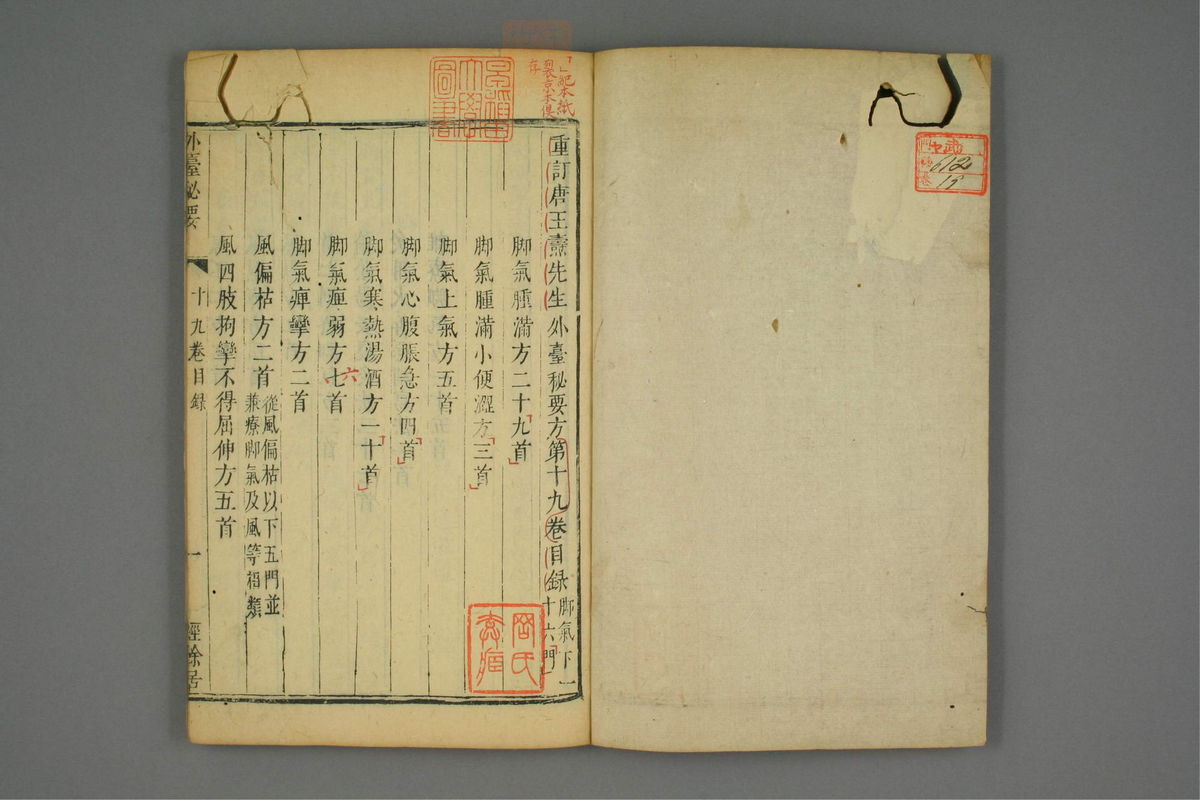 重訂唐王燾先生外臺秘要方第十九卷目録 脚氣下一十六門
脚氣腫滿方二十九首
脚氣腫滿小便澀方三首
脚氣上氣方五首
脚氣心腹脹急方四首
脚氣寒熱湯酒方一十首
脚氣痺弱方七首
六
脚氣痺攣方二首
風偏枯方二首 從風偏枯以下五門並
兼療脚氣及風等相類
風四肢拘攣不得屈伸方五首
外臺秘要
十九卷目録
一
經餘居
圖書
氏
612
19